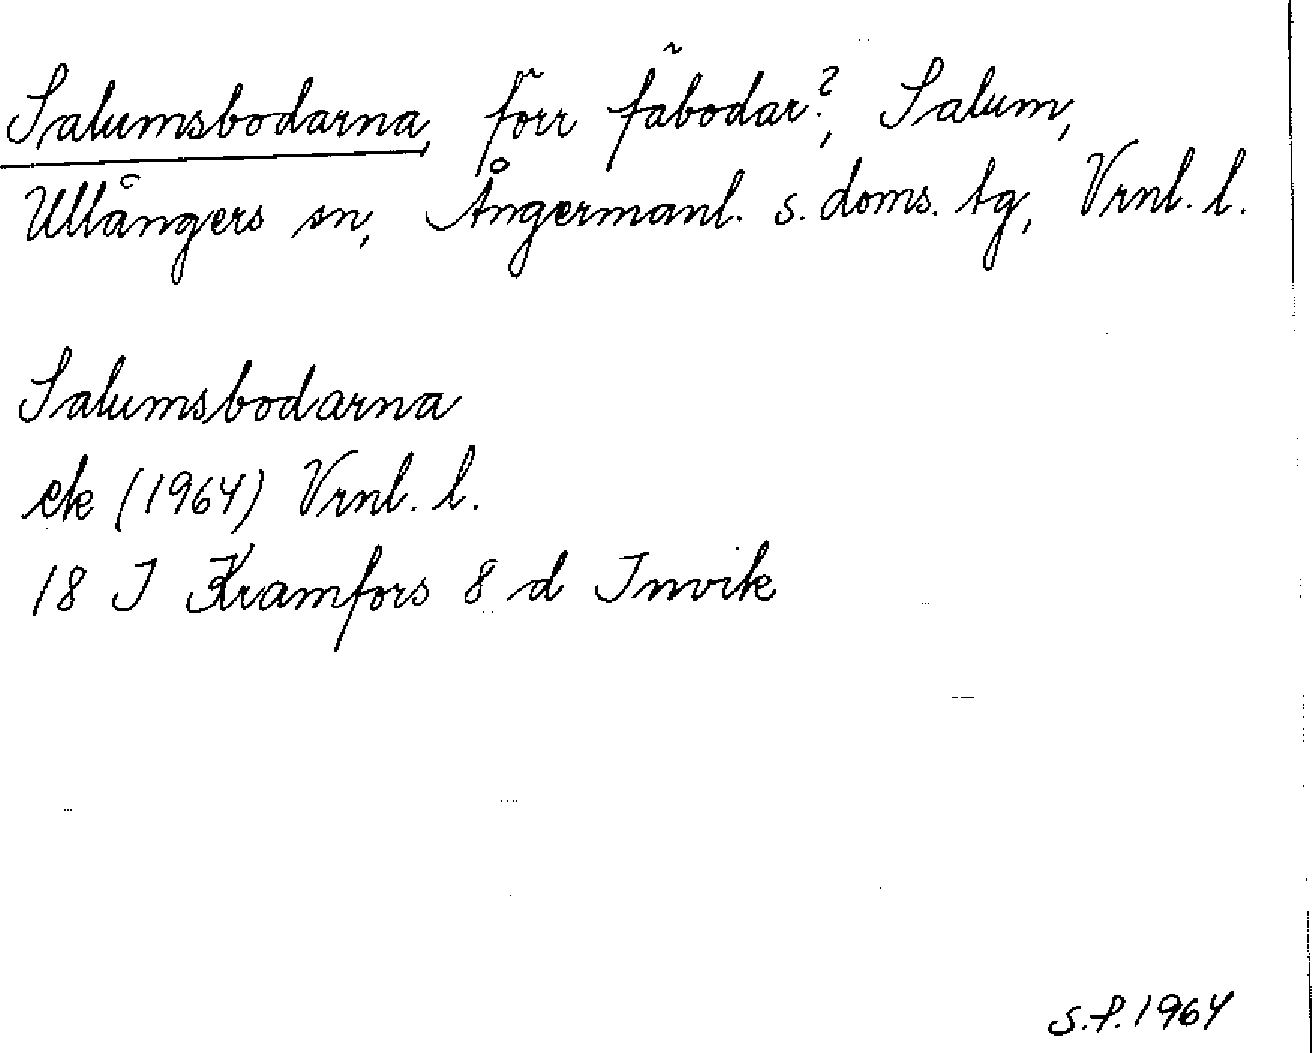 Salumsbodarna, förr fäbodar?, Salum,
Ullångers sn, Ångermanl. s. doms. tg, Vrnl. l.
Salumsbodarna
ek (1964) Vrnl. l.
18 I Kramfors 8 d Invik
S.P. 1964